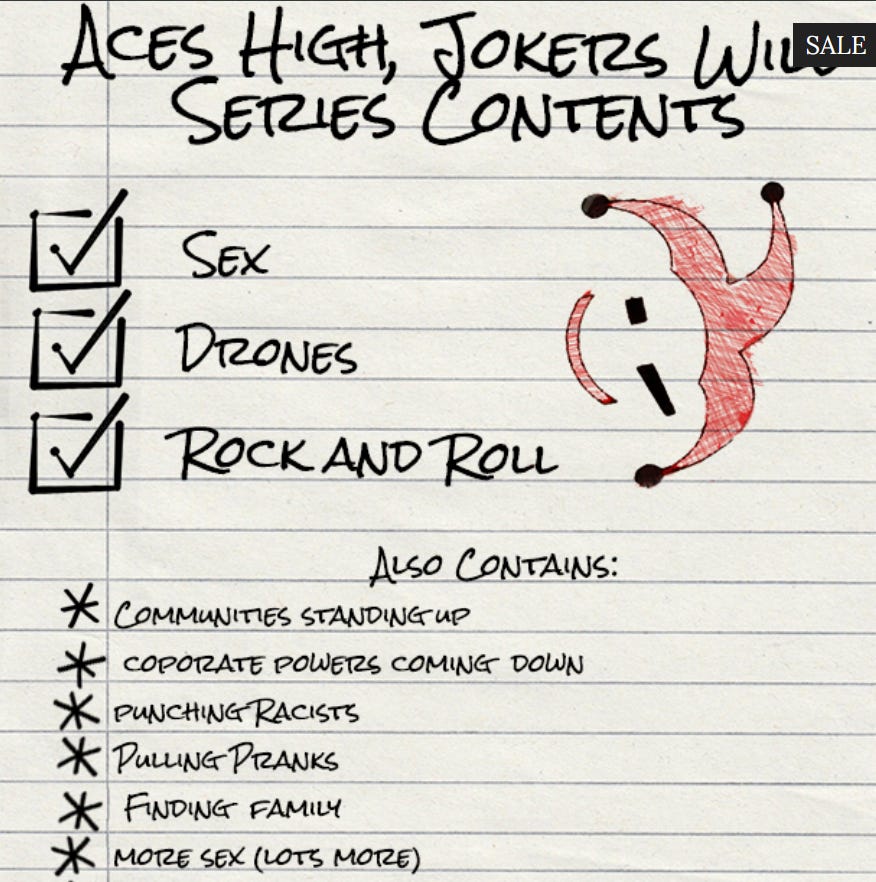 Aces High, Jokers Wil
SALE
Series Contents
Sex
Drones
Rock and Roll
Also Contains:
* Communities standing up
* coporate powers coming down
* punching Racists
* Pulling Pranks
* Finding family
* more sex (lots more)